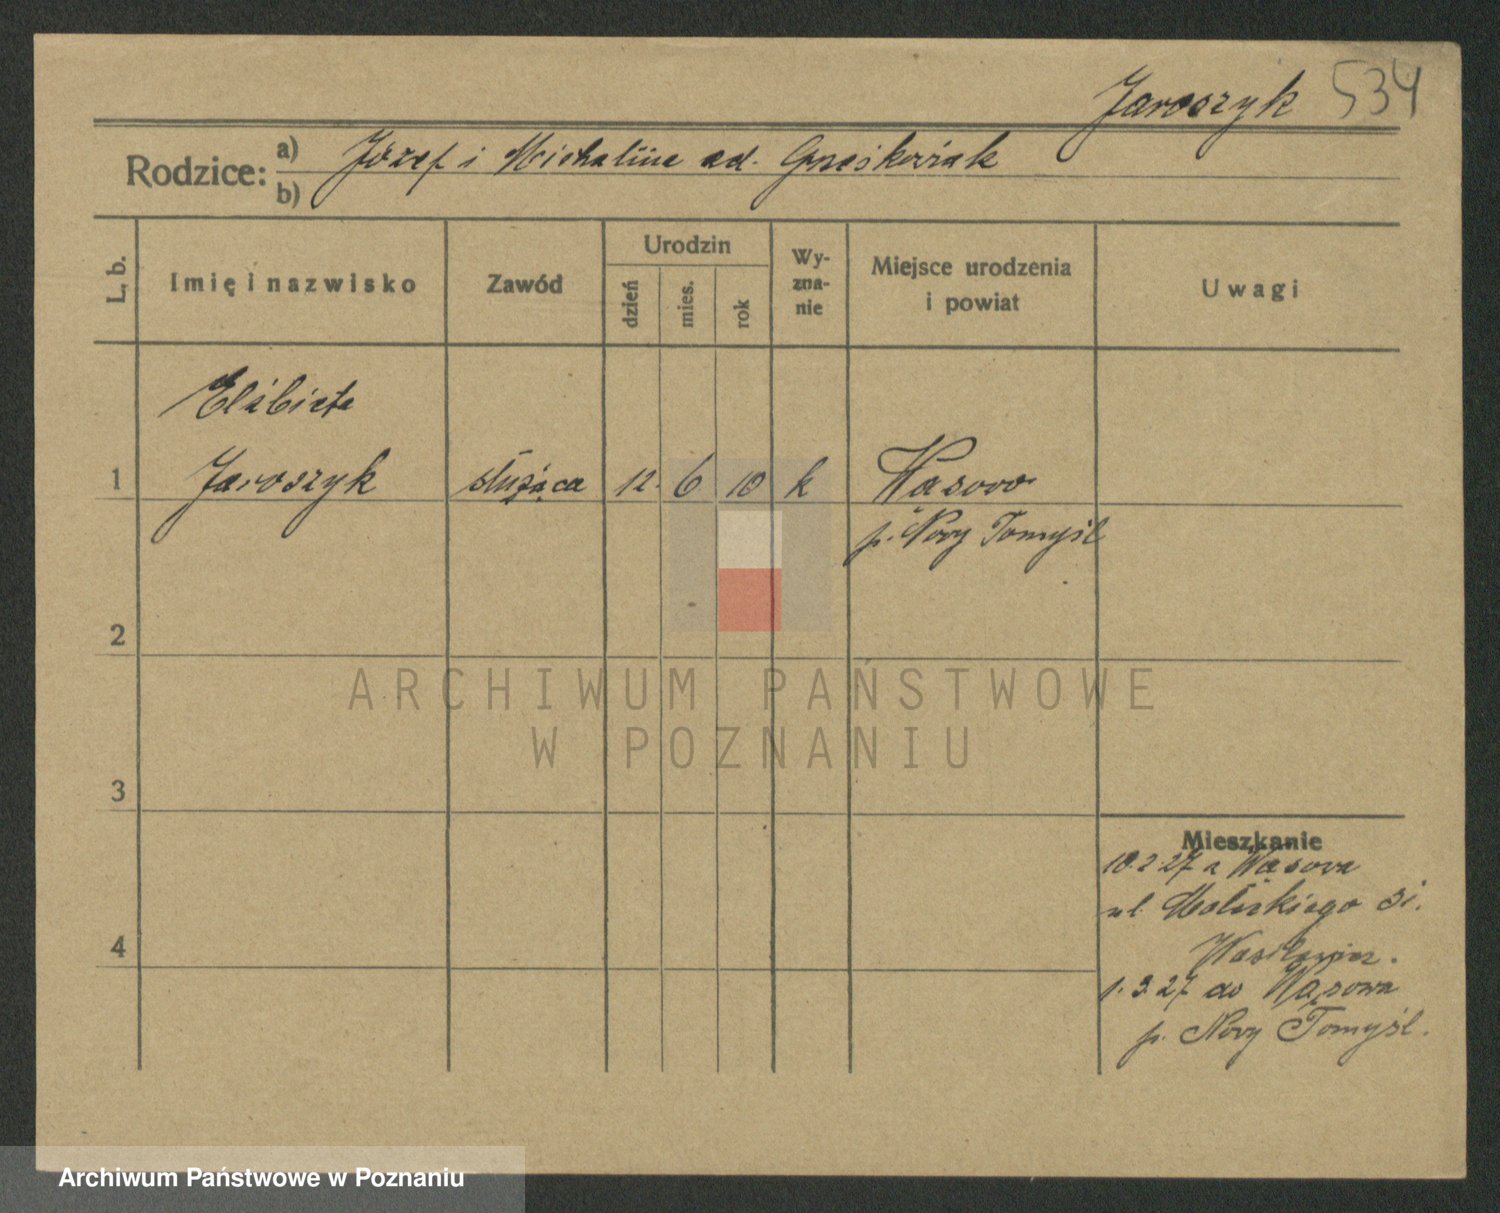 Jaroszyk 534
Rodzice: a) Józef i Michalina ad. Grześkowiak
b)
L. b.
Imię i nazwisko
Zawód
Urodzin
dzień
mies.
rok
Wy-
zna-
nie
Miejsce urodzenia
i powiat
Uwagi
Elżbieta
1 Jaroszyk służąca 12. 6 10 k Wąsowo
p. Nowy Tomyśl
2
3
4
ARCHIWUM PAŃSTWOWE
W POZNANIU
Mieszkanie
10.2.27 z Wąsowa
ul.
1.3.27 do Wąsowa
p. Nowy Tomyśl.
Archiwum Państwowe w Poznaniu